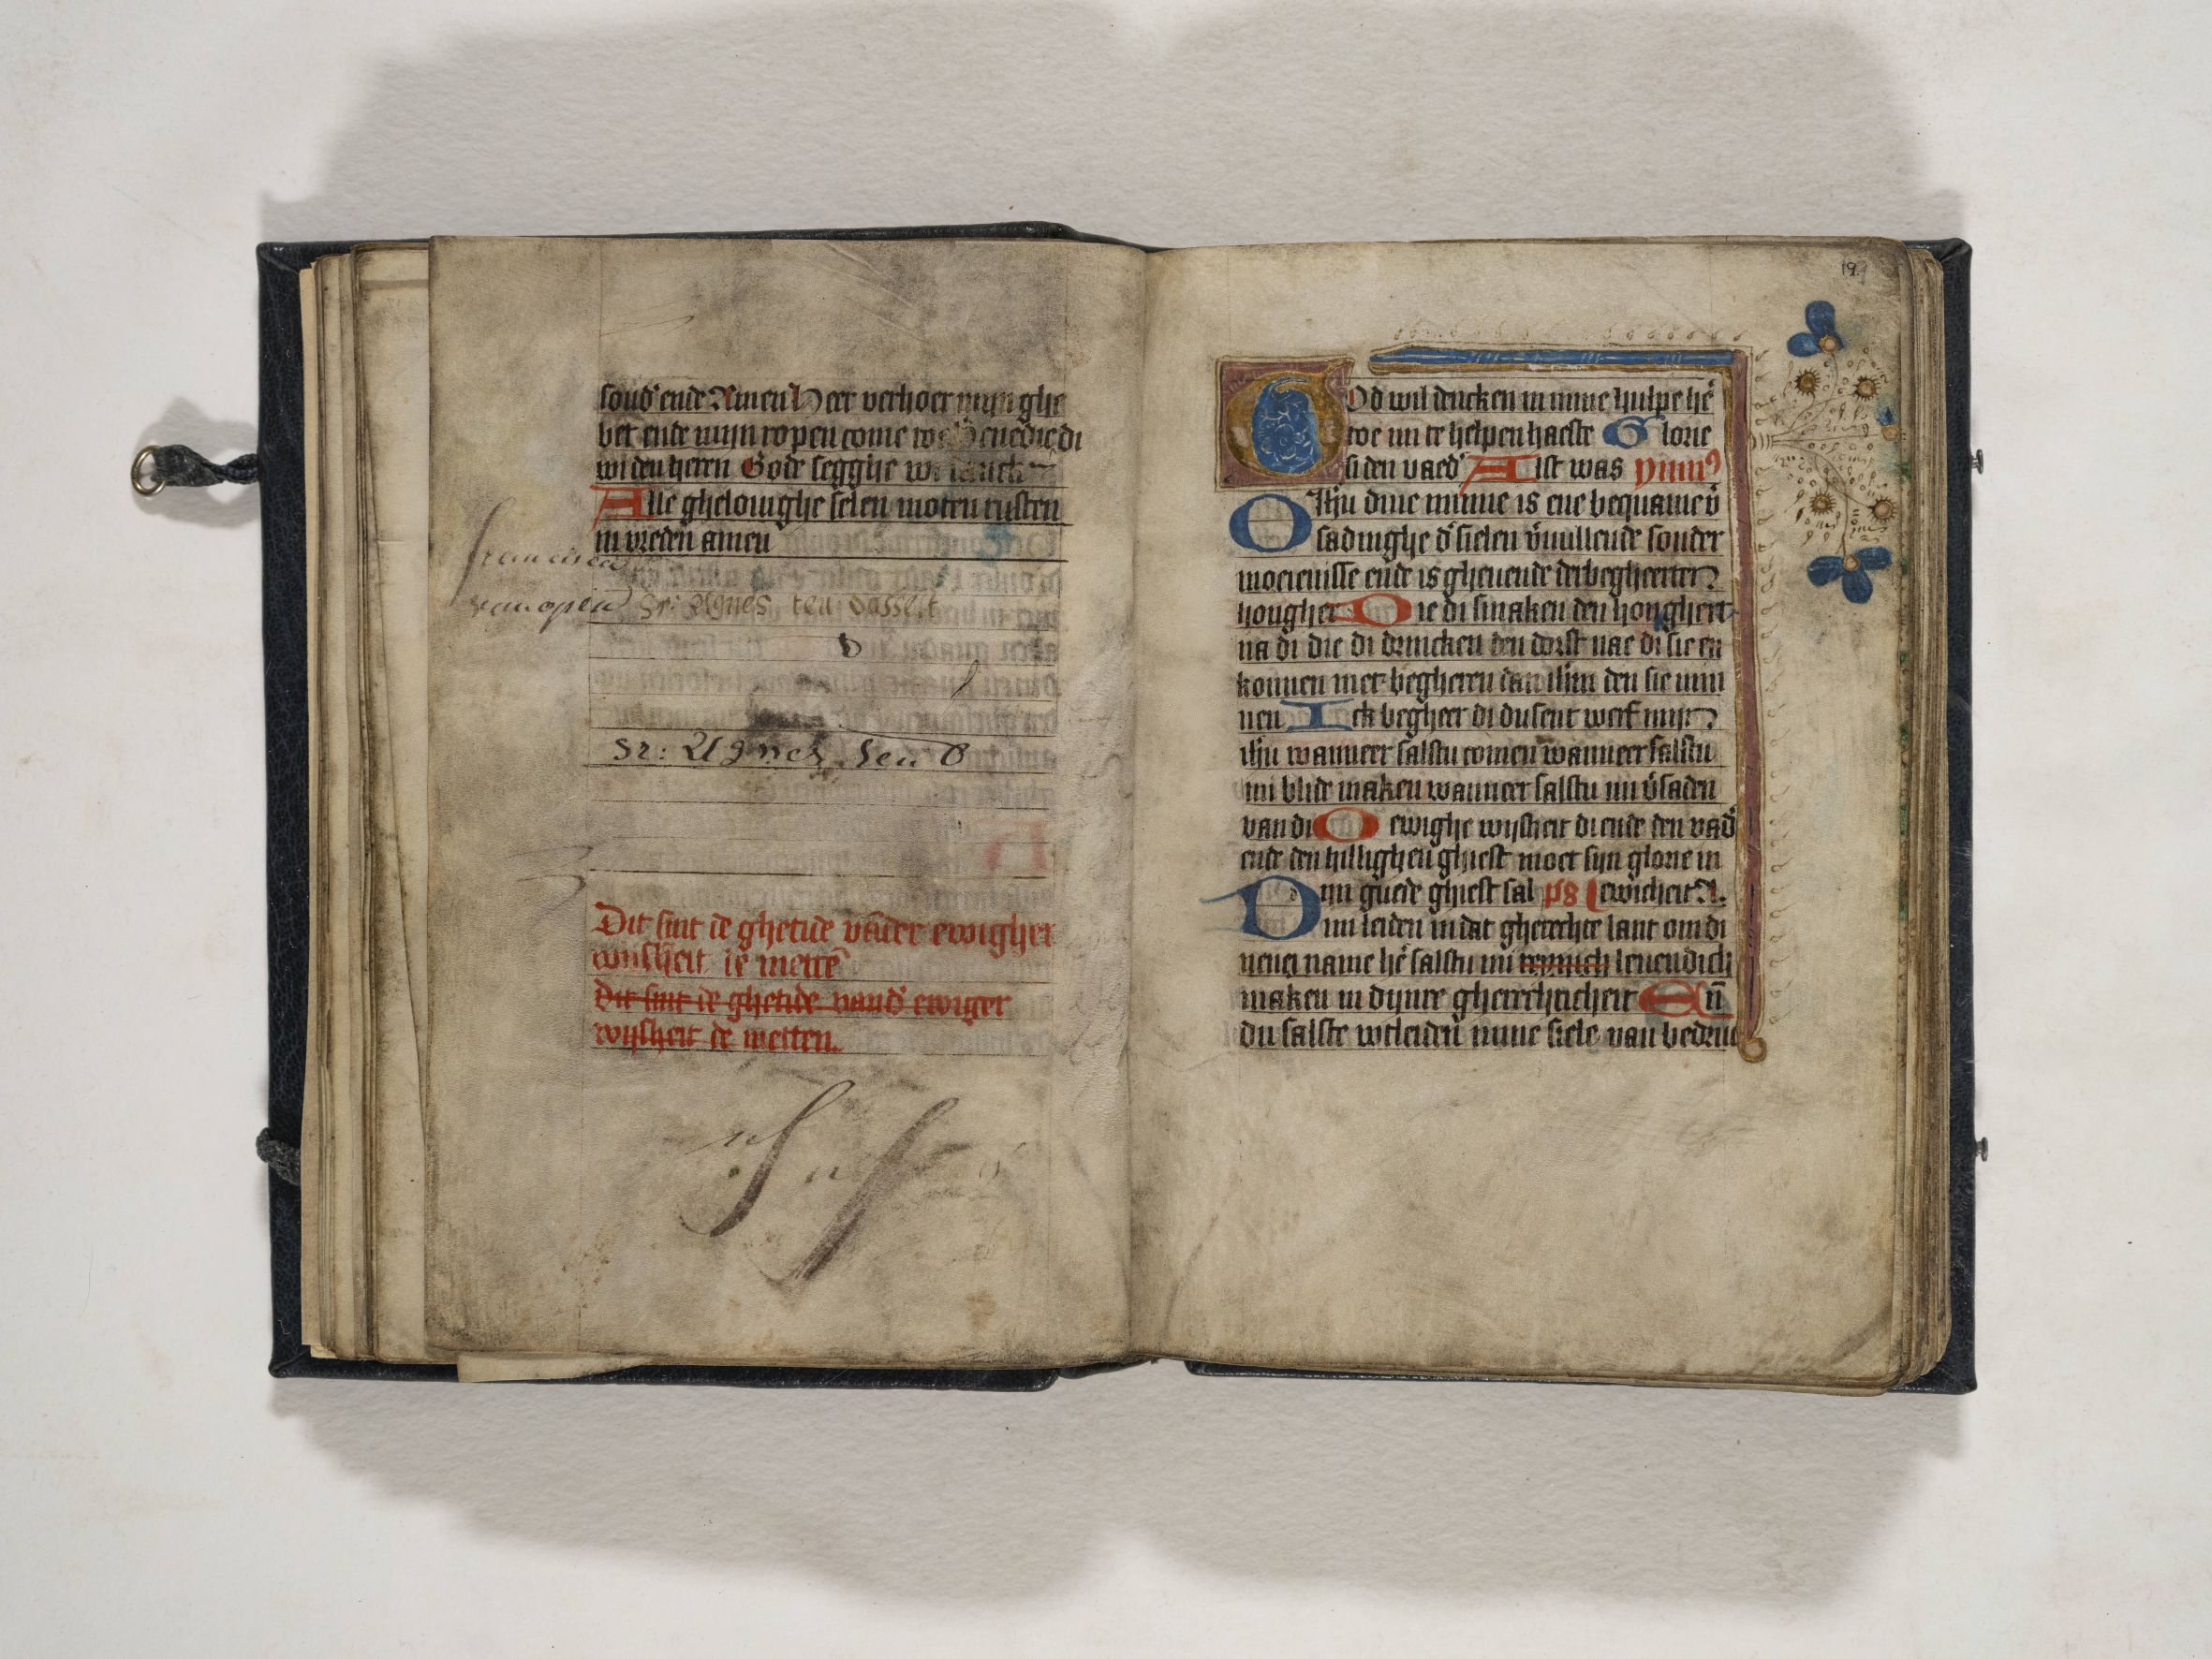 sond' ende Amen Heer verhoer mijn ghe
bet ende mijn ropen come to di Benedie di
wi den heren Gode segghe wi danck
Alle ghelouighe selen moten rusten
in vreden amen
francisca
van open Sr: Agnes ten dasselt
Sr: Agnes ten B
Dit sint de ghetide vāder ewigher
wijsheit de mettē
Dit sint de ghetide vand' ewiger
wijsheit de metten.
19
God wil dencken in mine hulpe hē
toe mi te helpen haeste Glorie
si den vaed' Alst was ymn⁹
O Ihū dine minne is ene bequame v̄
sadinghe d' sielen v̄uullende sonder
moeienisse ende is gheuende der begheerten
hongher Die di smaken den honghert
na di die di drincken den dorst nae di sie en
konnen met begheren dan ihm den sie min
nen Ick begheer di dusent werf mijn
ihū wanneer salstu comen wanneer salstu
mi blide maken wanneer salstu mi v̄saden
van di O ewighe wijsheit di ende den vad'
ende den hillighen ghiest moet sijn glorie in
Dijn guede ghiest sal ps ewicheit A.
mi leiden in dat gherechte lant om di
nen name hē salstu mi leuendich
maken in dijnre gherechticheit En̄
du salste wtleiden mine siele van bedruc